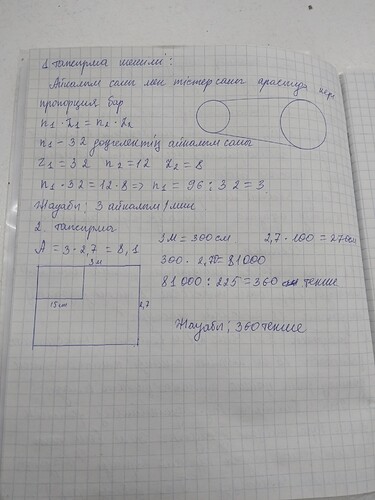 1 тапсырма шешімі:
Айналым саны мен тістер саны арасында кері
пропорция бар
n₁ · z₁ = n₂ · z₂
n₁ - 32 доңғелектің айналым саны
z₁ = 32 n₂ = 12 z₂ = 8
n₁ · 32 = 12 · 8 => n₁ = 96 : 32 = 3
Жауабы; 3 айналым/мин
2. тапсырма
A = 3 · 2,7 = 8,1
3м = 300см 2,7 · 100 = 270см
300 · 270 = 81000
81000 : 225 = 360 текше
3м
15см
2,7
Жауабы; 360 текше